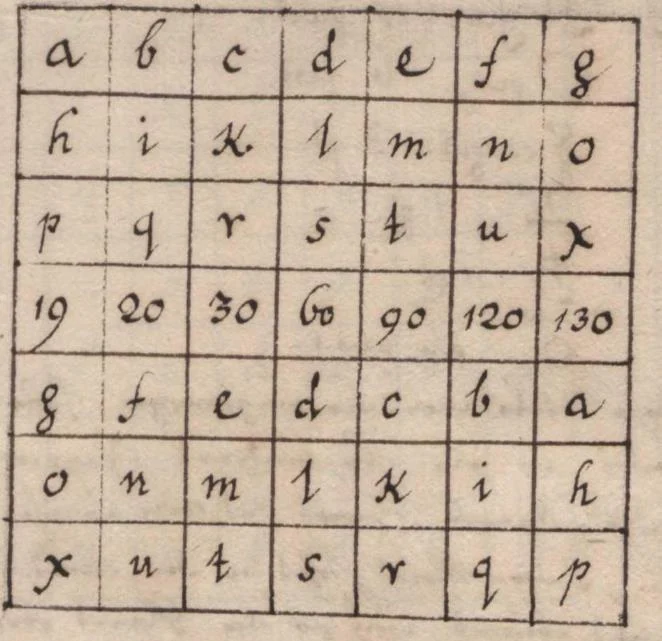 a b c d e f g
h i k l m n o
p q r s t u x
19 20 30 60 90 120 130
g f e d c b a
o n m l k i h
x u t s r q p